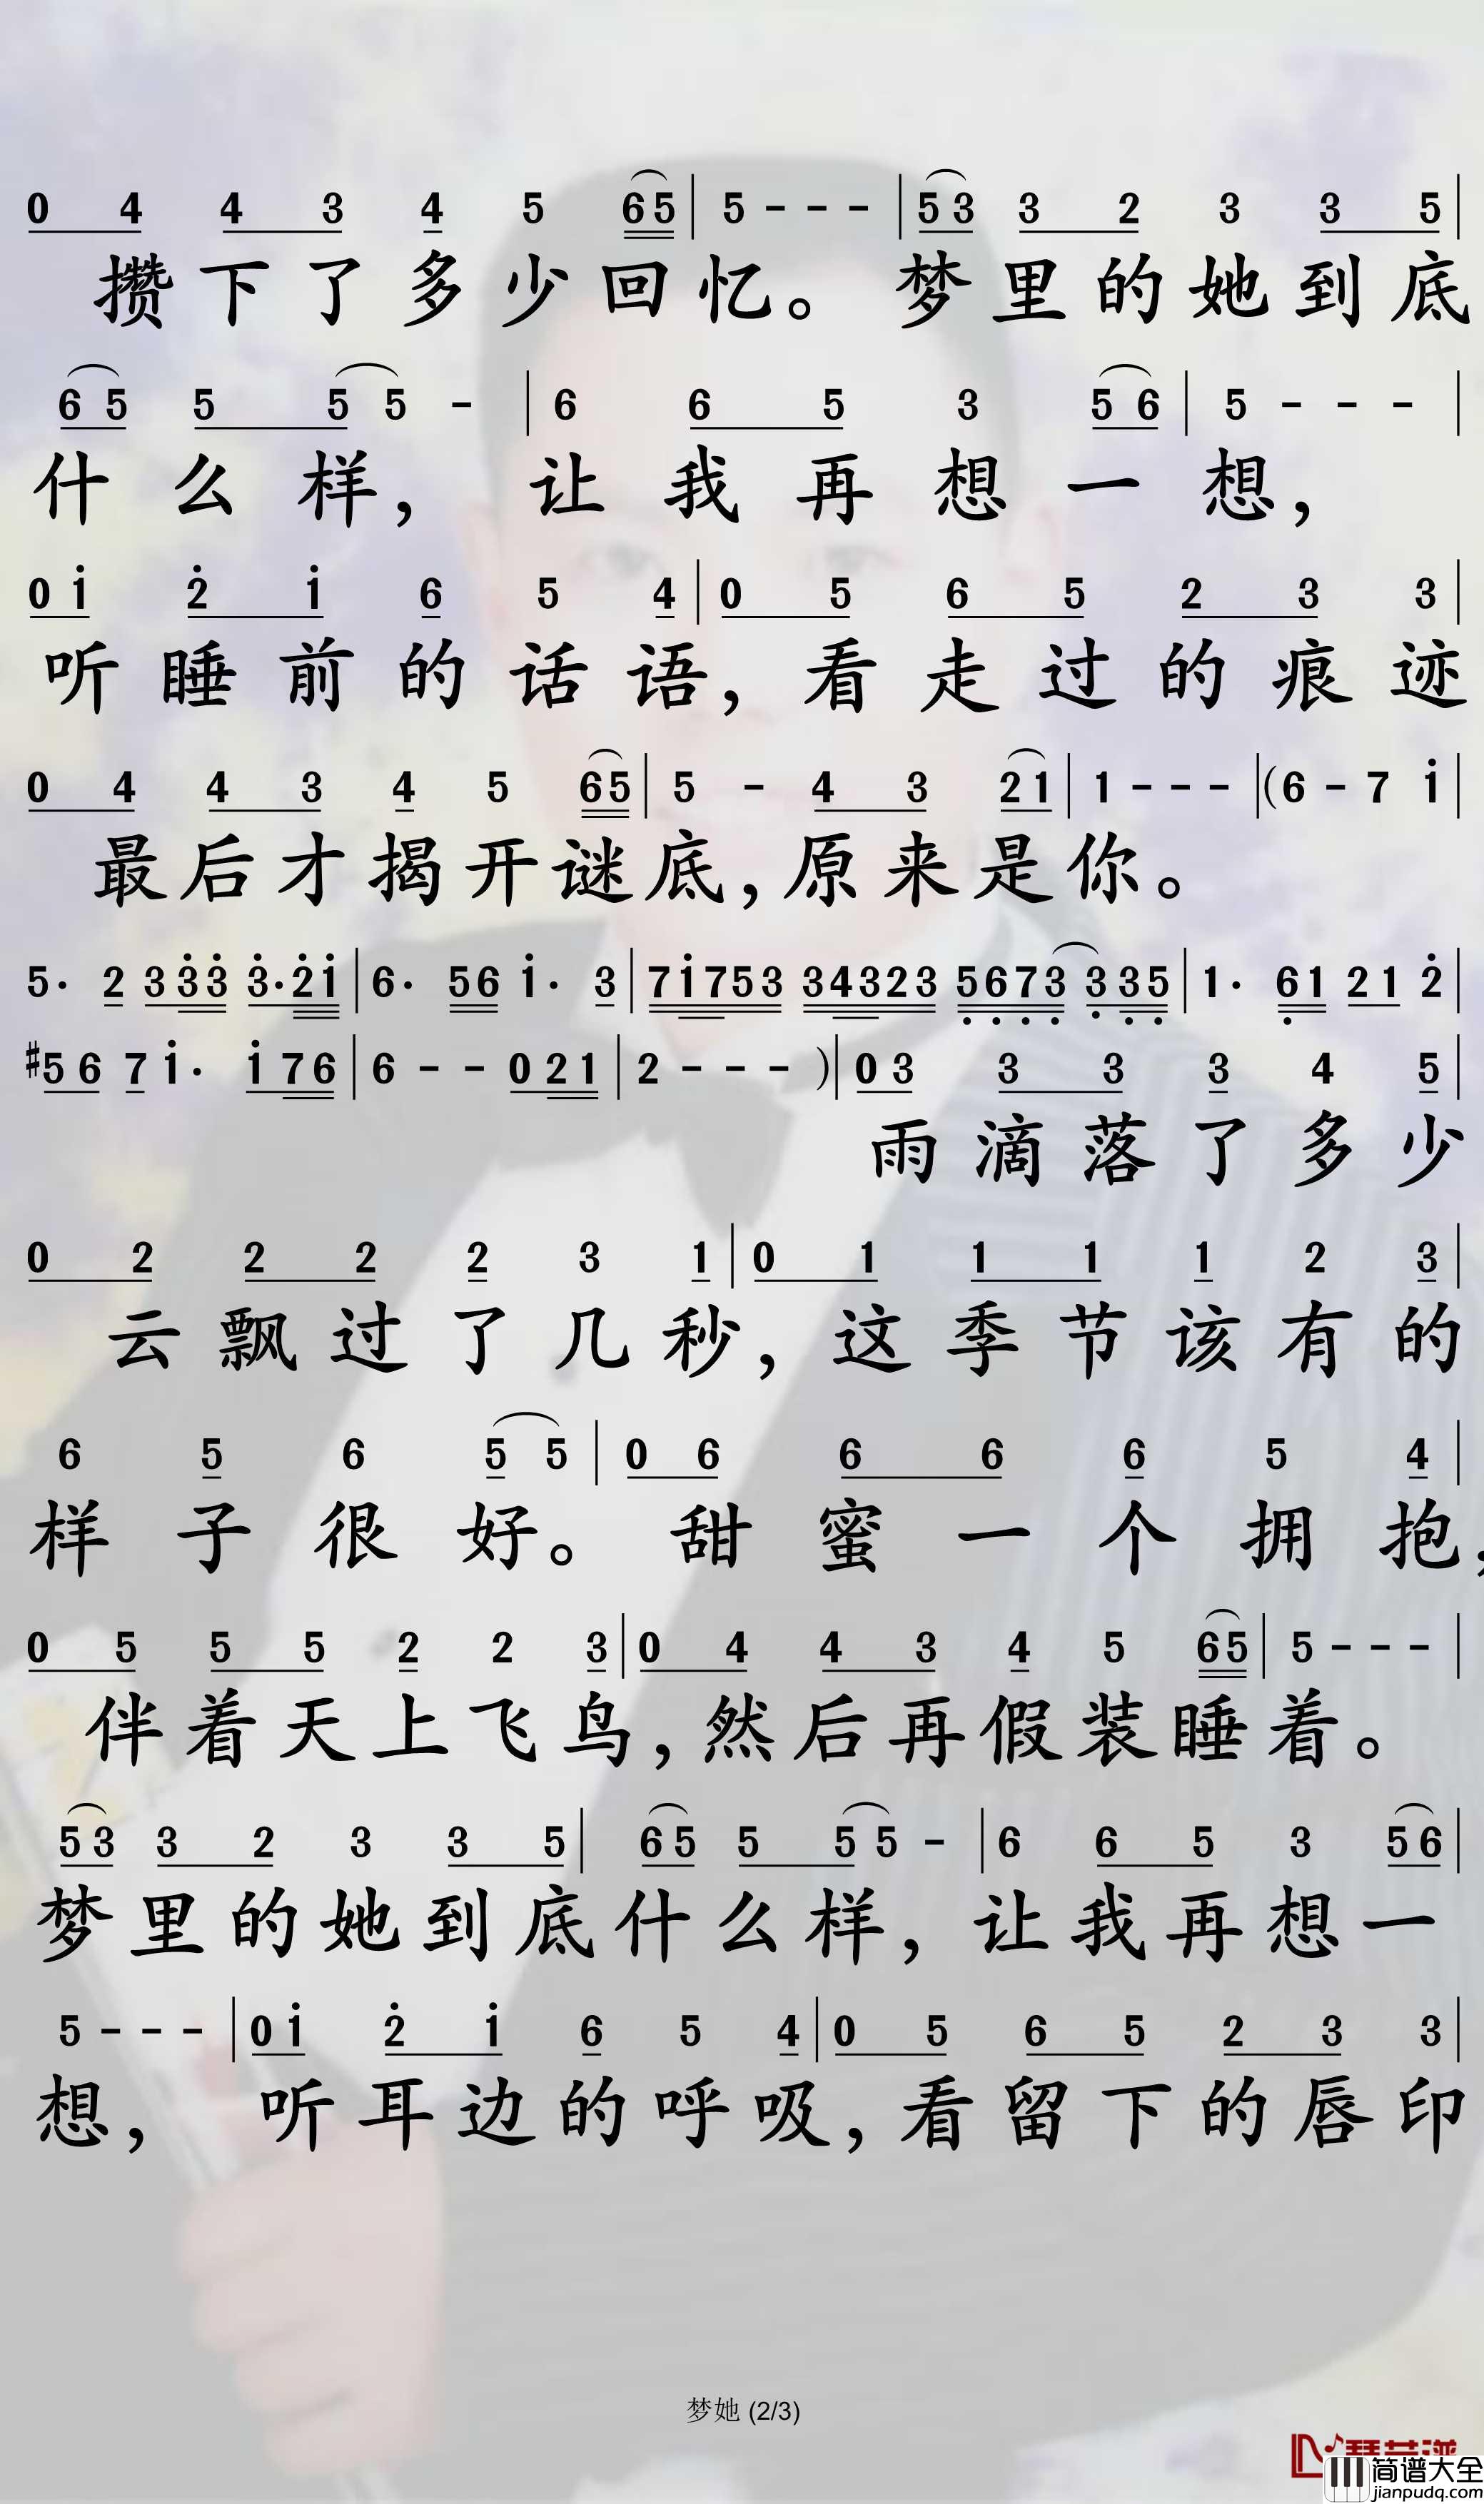 0 4 4 3 4 5 6 5 | 5 - - - | 5 3 3 2 3 3 5 |
攒下了多少回忆。梦里的她到底
6 5 5 5 5 - | 6 6 5 3 5 6 | 5 - - - |
什么样，让我再想一想，
0 1̇ 2̇ 1̇ 6 5 4 | 0 5 6 5 2 3 3 |
听睡前的话语，看走过的痕迹
0 4 4 3 4 5 6 5 | 5 - 4 3 2 1 | 1 - - - | (6 - 7 1̇ |
最后才揭开谜底，原来是你。
5· 2 3 3̇ 3̇ 3̇· 2̇ 1̇ | 6· 5 6 1̇· 3 | 7 1̇ 7 5 3 3 4 3 2 3 5̣ 6̣ 7̣ 3̣ 3̣ 3̣ 5̣ | 1· 6̣ 1 2 1 2̇ |
#5 6 7 1̇· 1̇ 7 6 | 6 - - 0 2 1 | 2 - - - ) | 0 3 3 3 3 4 5 |
雨滴落了多少
0 2 2 2 2 3 1 | 0 1 1 1 1 2 3 |
云飘过了几秒，这季节该有的
6 5 6 5 5 | 0 6 6 6 6 5 4 |
样子很好。甜蜜一个拥抱，
0 5 5 5 2 2 3 | 0 4 4 3 4 5 6 5 | 5 - - - |
伴着天上飞鸟，然后再假装睡着。
5 3 3 2 3 3 5 | 6 5 5 5 5 - | 6 6 5 3 5 6 |
梦里的她到底什么样，让我再想一
5 - - - | 0 1̇ 2̇ 1̇ 6 5 4 | 0 5 6 5 2 3 3 |
想，听耳边的呼吸，看留下的唇印
梦她 (2/3)
简谱大全
jianpudq.com